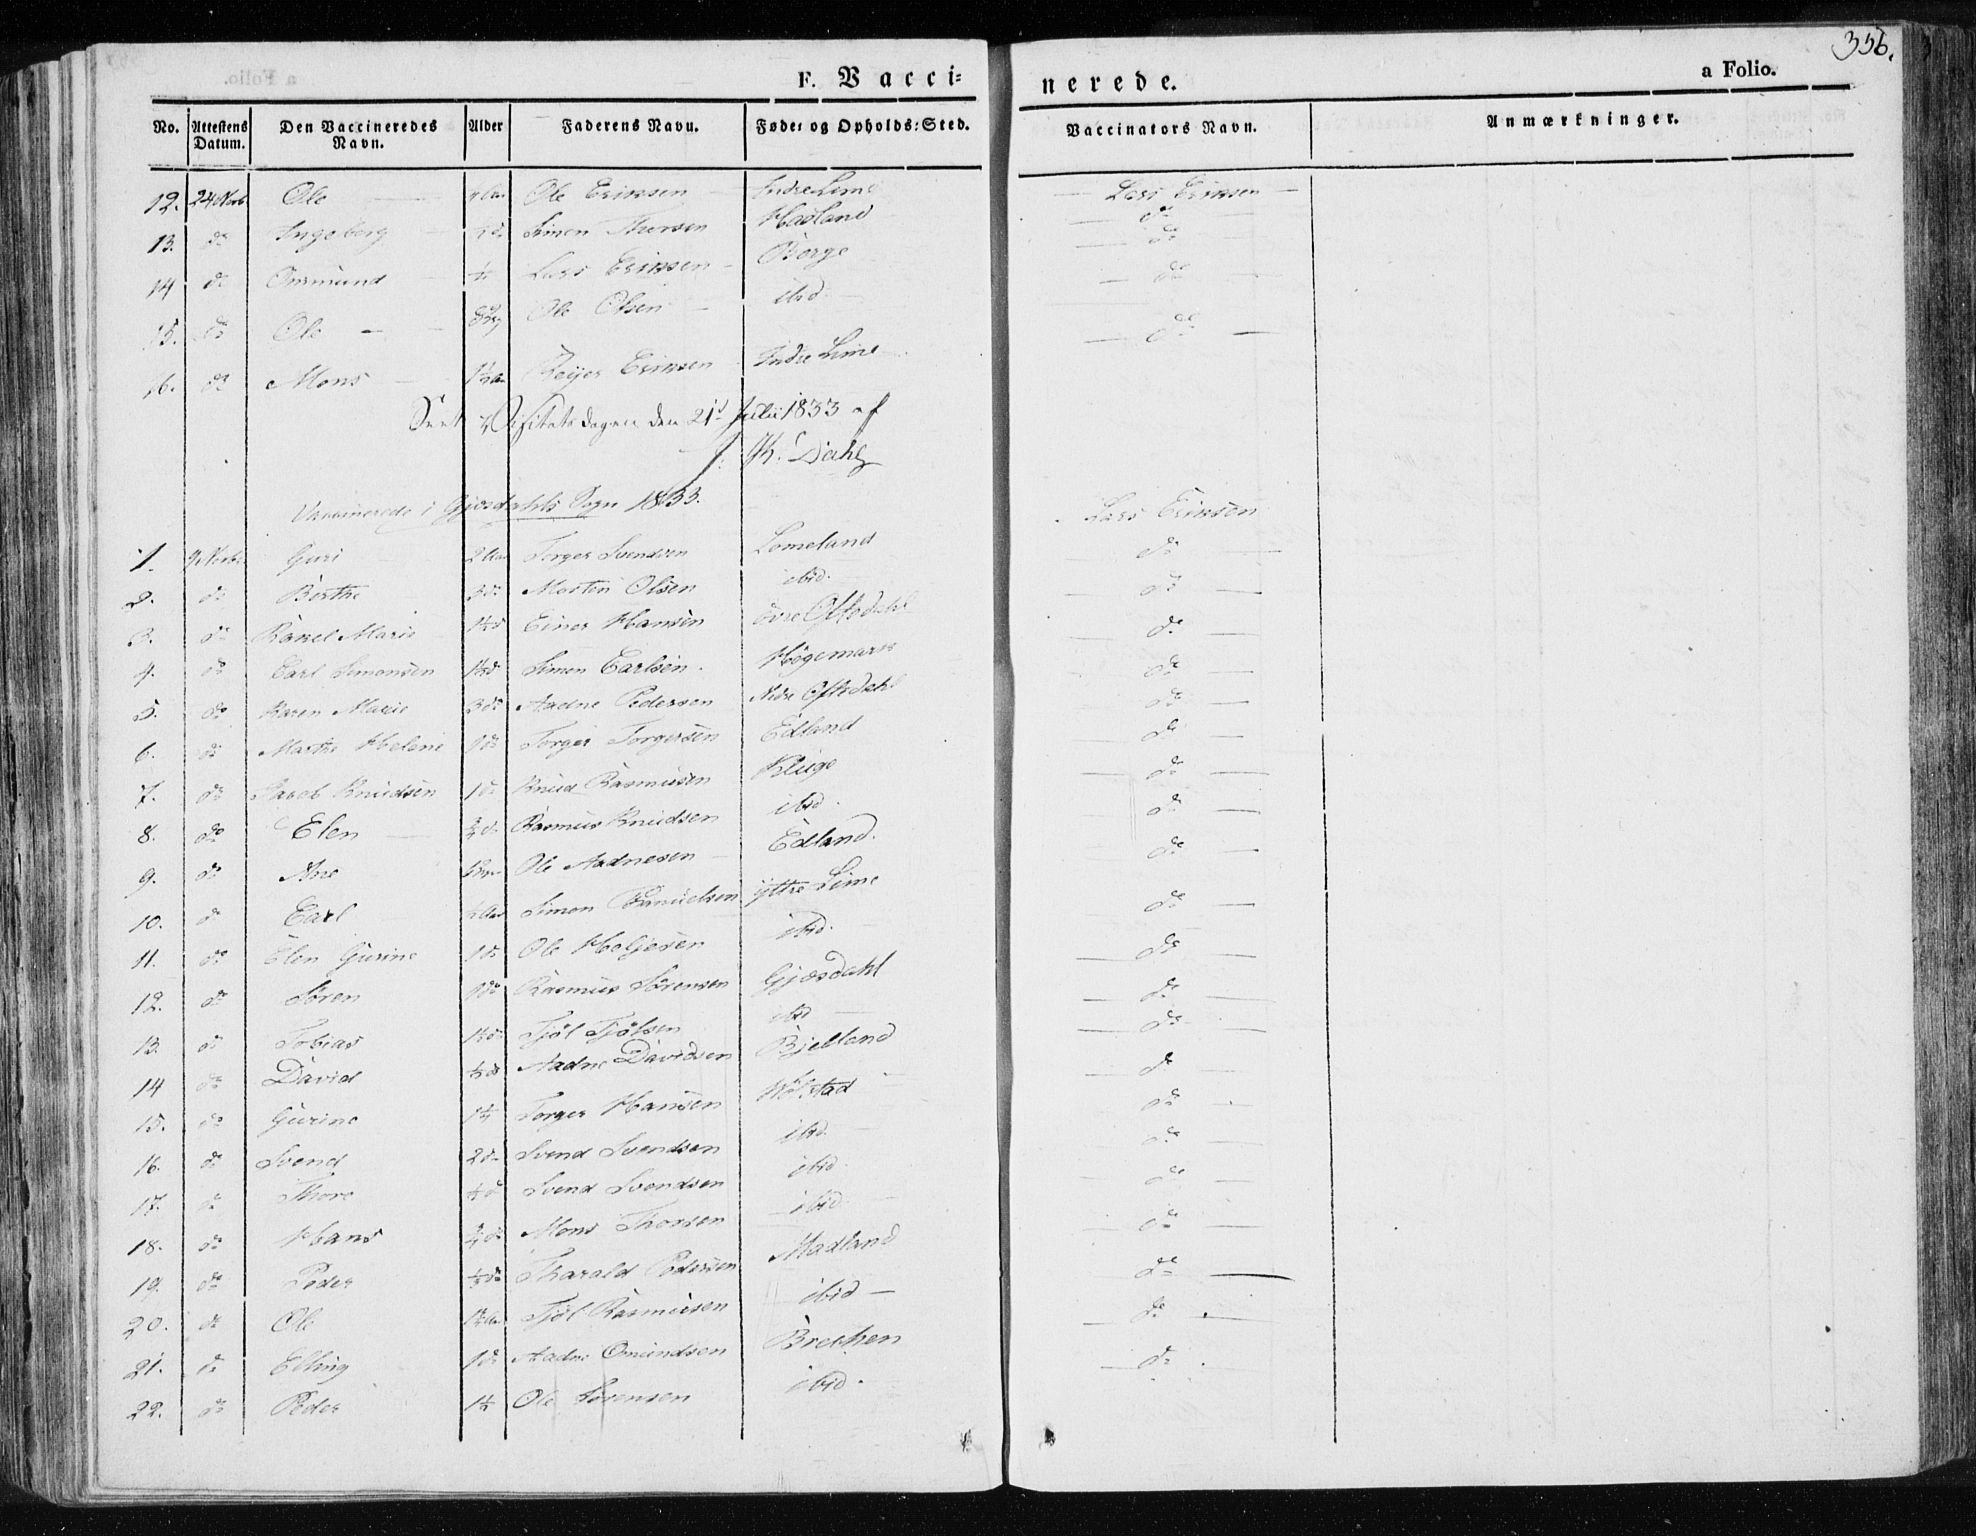 356.
F. Vacci=
nerede.
a Folio.
No. Attestens Datum. Den Vaccineredes Navn. Alder Faderens Navn. Føde= og Opholds=Sted. Vaccinators Navn. Anmærkninger.
12. 24 Novb Ole Ole Eriksen Indre Lime Lars Eriksen
13. do Ingeborg do Simon Thorsen Madland do
14 do Ommund Lars Eriksen Børge do
15. do Ole Ole Olsen ibd. do
16. do Mons Reijer Eriksen Indre Lime do
Seet i Visitatsdagen den 21d Julii 1833 af
Dahl
Vaccinerede i Gjæsdahls Sogn 1833.
1. 9 Novb. Guri 2 Aar Torger Svendsen Lomeland Lars Eriksen
2. do Berthe 3 do Morten Olsen ibid. do
3. do Rakel Marie 1½ d Einer Hansen övre Oftedahl do
4. do Carl Simonsen Simon Carlsen. Högemark do
5. do Karen Marie 3 do Aadne Pedersen Nedre Oftedahl do
6. do Marthe Helene 1 do Torger Torgersen Edland do
7. do Jacob Knudsen 1 do Knud Rasmusen Kluge do
8. do Elen ¾ d. Rasmus Knudsen ibd. do
9. do Ane Ole Aadnesen Edland. do
10. do Carl ½ Aar Simon Samuelsen ÿttre Lime do
11. do Elen Gurine 1 do Ole Helgesen ibid. do
12. do Sören 1 do Rasmus Sörensen Gjæsdahl do
13. do Tobias 1½ do Tjöl Tjölsen ibd do
14 do David ½ do Aadne Davidsen Bjelland do
15. do Gurine 1½ Torger Hansen Mölstad do
16. do Svend 2 do Svend Svendsen ibd. do
17. do Thore Svend Svendsen ibid. do
18. do Hans ¾ do Mons Thorsen ibid. do
19. do Peder ½ do Tharald Pedersen Madland do
20. do Ole Tjöl Rasmusen ibid do
21. do Elling 1 do Aadne Omundsen Brechen do
22. do Peder 1½ Ole Sörensen ibid. do